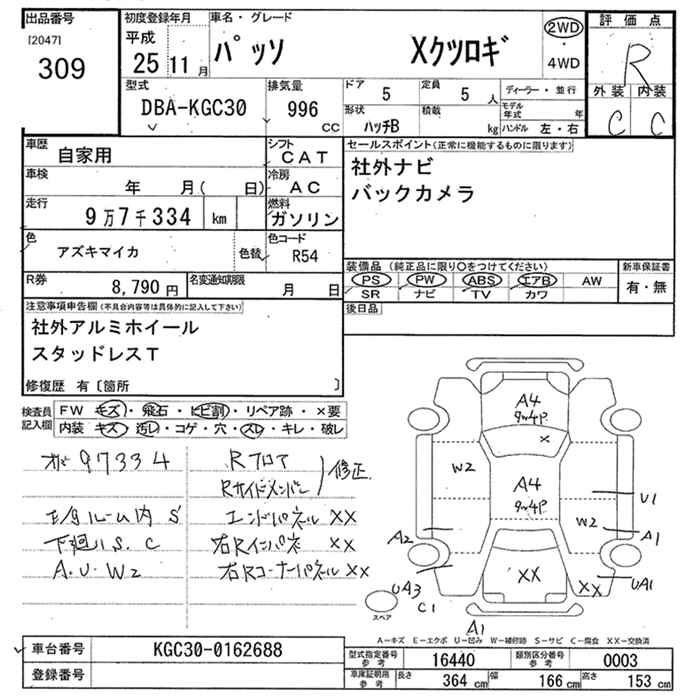 出品番号
[2047]
309
初度登録年月
平成
25 11 月
車名・グレード
パッソ Xクツロギ
2WD
・
4WD
評価点
R
外装 内装
C C
型式
DBA-KGC30
排気量
996 CC
ドア 5
定員 5 人
形状 ハッチB
積載 kg
ディーラー・並行
モデル年式 年
ハンドル 左・右
車歴 自家用
シフト CAT
車検 年 月( 日)
冷房 AC
走行 9万7千334 km
燃料 ガソリン
色 アズキマイカ 色替
色コード R54
R券 8,790 円
名変通知期限 月 日
セールスポイント(正常に機能するものに限ります)
社外ナビ
バックカメラ
装備品 (純正品に限り○をつけてください)
PS PW ABS エアB AW
SR ナビ TV カワ
新車保証書
有・無
後日品
注意事項申告欄(不具合内容等は具体的に記入して下さい)
社外アルミホイール
スタッドレスT
修復歴 有〔箇所 〕
検査員記入欄
FW キズ・飛石・ヒビ割・リペア跡・×要
内装 キズ・汚レ・コゲ・穴・スレ・キレ・破レ
97334
Rフロア
Rサイドメンバー
修正
エンドパネル XX
下廻りS.C
右Rインパネ XX
A.U.W2
右Rコーナーパネル XX
A4
X
W2
A4
U1
W2
A2
A1
XX
XX
UA3
UA1
C1
スペア
A1
A-キズ E-エクボ U-凹み W-補修跡 S-サビ C-腐食 XX-交換済
車台番号 KGC30-0162688
登録番号
型式指定番号参考 16440
類別区分番号参考 0003
車庫証明用参考
長さ 364 cm
幅 166 cm
高さ 153 cm